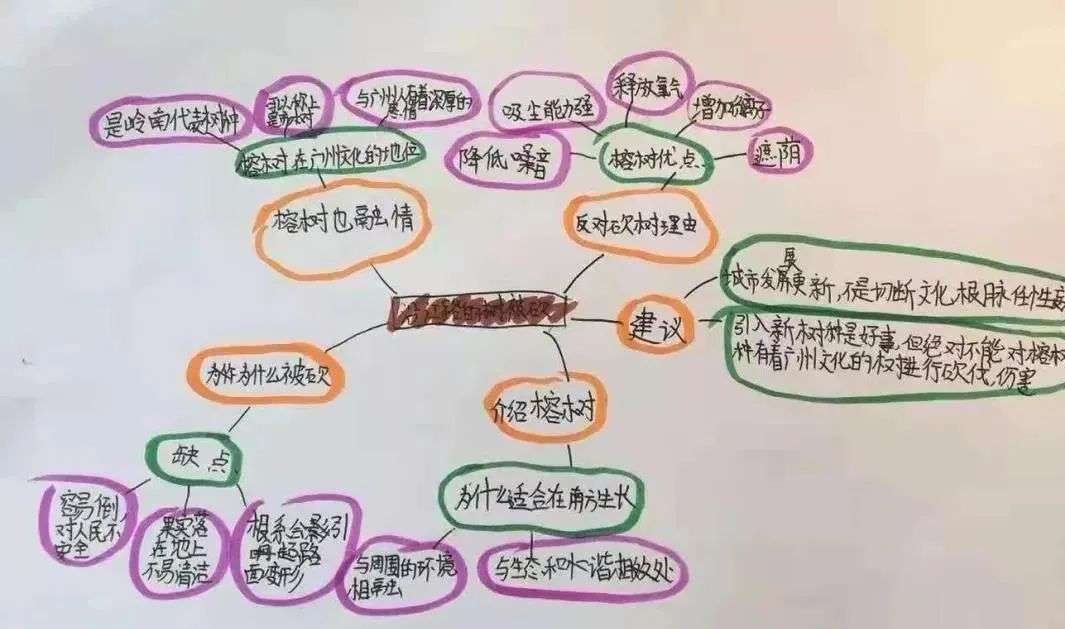 是岭南代表树种
与广州人有着深厚的
感情
榕树在广州文化的地位
榕树也融出情
吸尘能力强
释放氧气
增加负离子
降低噪音
榕树优点
遮荫
反对砍树理由
建议
展
城市发展更新,不是切断文化根脉任性
引入新树种是好事,但绝对不能对榕树
种有着广州文化的树进行砍伐,伤害
为什为什么被砍
缺点
容易倒,
对人民不
安全
果实落
在地上
不易清洁
根系会影
面变形
介绍榕树
为什么适合在南方生长
与周围的环境
相融
与生态和水谐相处